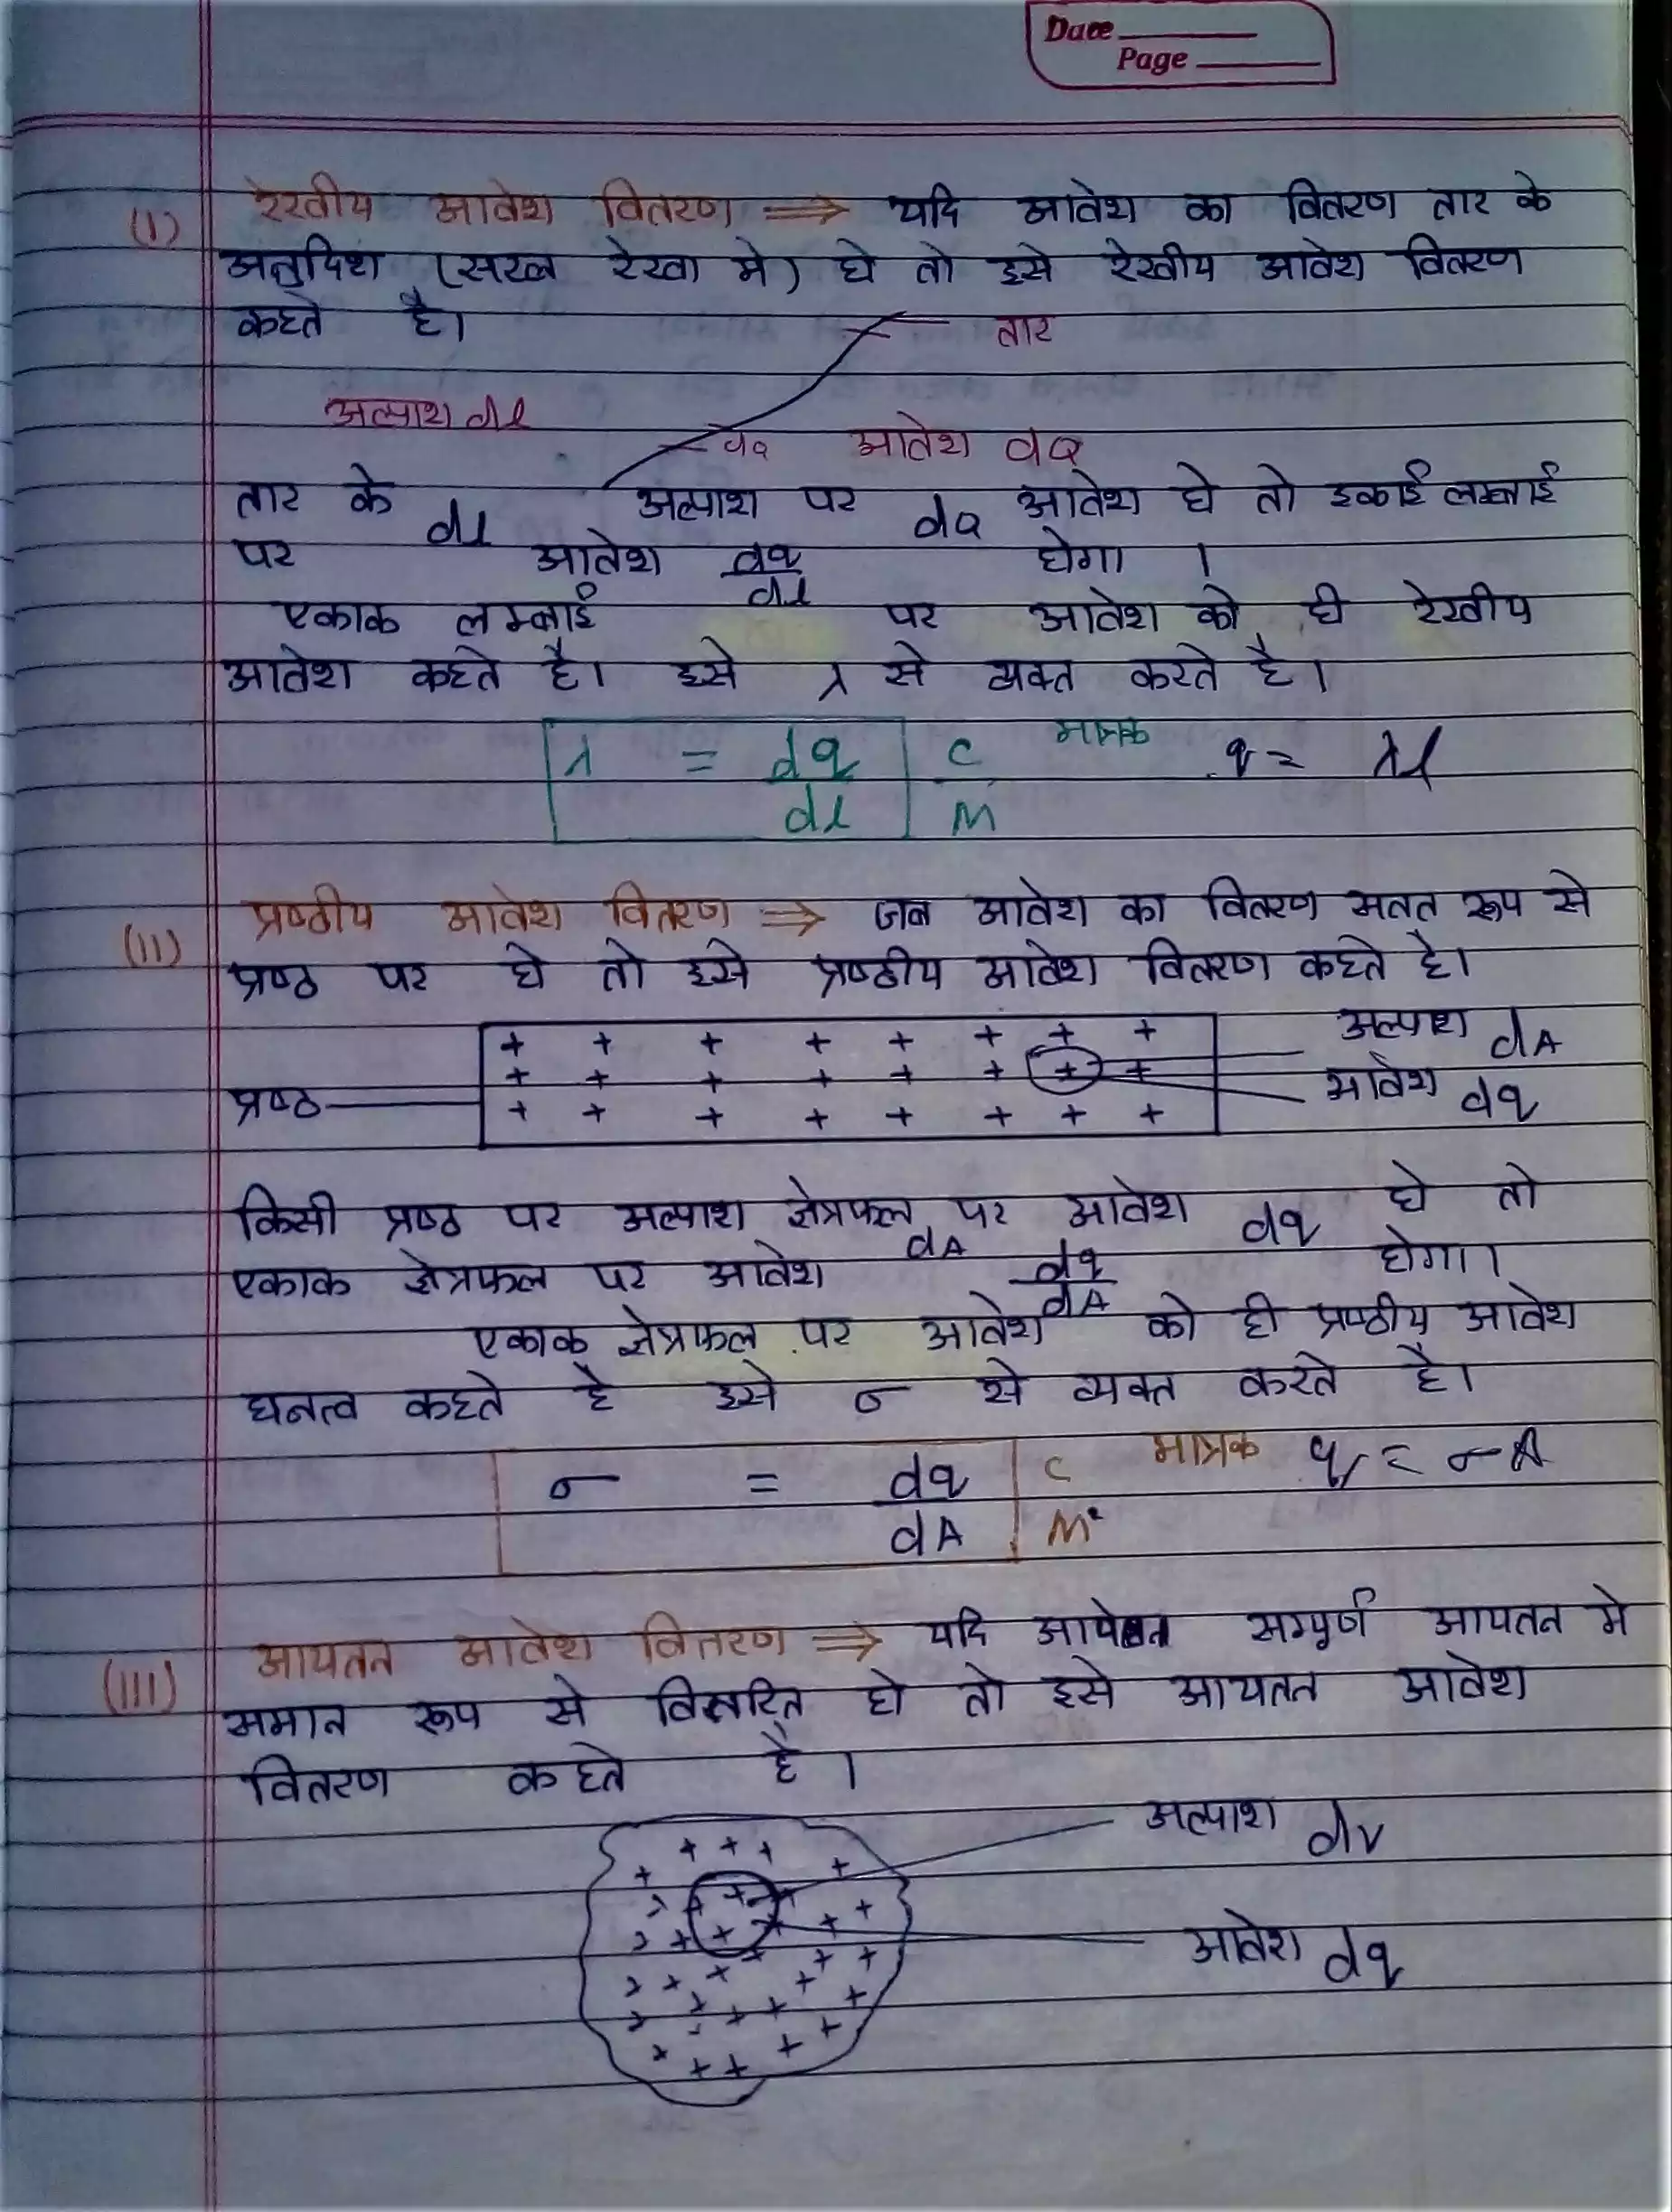 Date
Page
(I) रेखीय आवेश वितरण ⇒ यदि आवेश का वितरण तार के
अनुदिश (सरल रेखा मे) हो तो इसे रेखीय आवेश वितरण
कहते है।
तार
अल्पाश dl
dq आवेश dQ
तार के dl अल्पाश पर dq आवेश हो तो इकाई लम्बाई
पर आवेश dq/dl होगा ।
एकाक लम्बाई पर आवेश को ही रेखीय
आवेश कहते है। इसे λ से व्यक्त करते है।
λ = dq/dl C/M मात्रक q = λl
(II) प्रष्ठीय आवेश वितरण ⇒ जब आवेश का वितरण सतत रूप से
प्रष्ठ पर हो तो इसे प्रष्ठीय आवेश वितरण कहते है।
+ + + + + + + + अल्पाश dA
+ + + + + + + +
प्रष्ठ + + + + + + + + आवेश dq
किसी प्रष्ठ पर अल्पाश क्षेत्रफल dA पर आवेश dq हो तो
एकाक क्षेत्रफल पर आवेश dq/dA होगा।
एकाक क्षेत्रफल पर आवेश को ही प्रष्ठीय आवेश
घनत्व कहते है इसे σ से व्यक्त करते है।
σ = dq/dA C/M² मात्रक q = σA
(III) आयतन आवेश वितरण ⇒ यदि सम्पूर्ण आयतन मे
समान रूप से वितरित हो तो इसे आयतन आवेश
वितरण कहते है ।
अल्पाश dv
आवेश dq